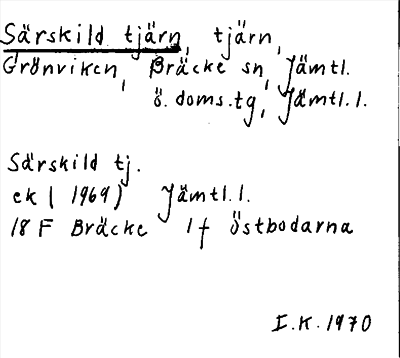 Särskild tjärn, tjärn,
Grönviken, Bräcke sn, Jämtl.
ö. doms.tg, Jämtl.l.
Särskild tj.
ek (1969) Jämtl.l.
18 F Bräcke 1 f Östbodarna
I.K. 1970